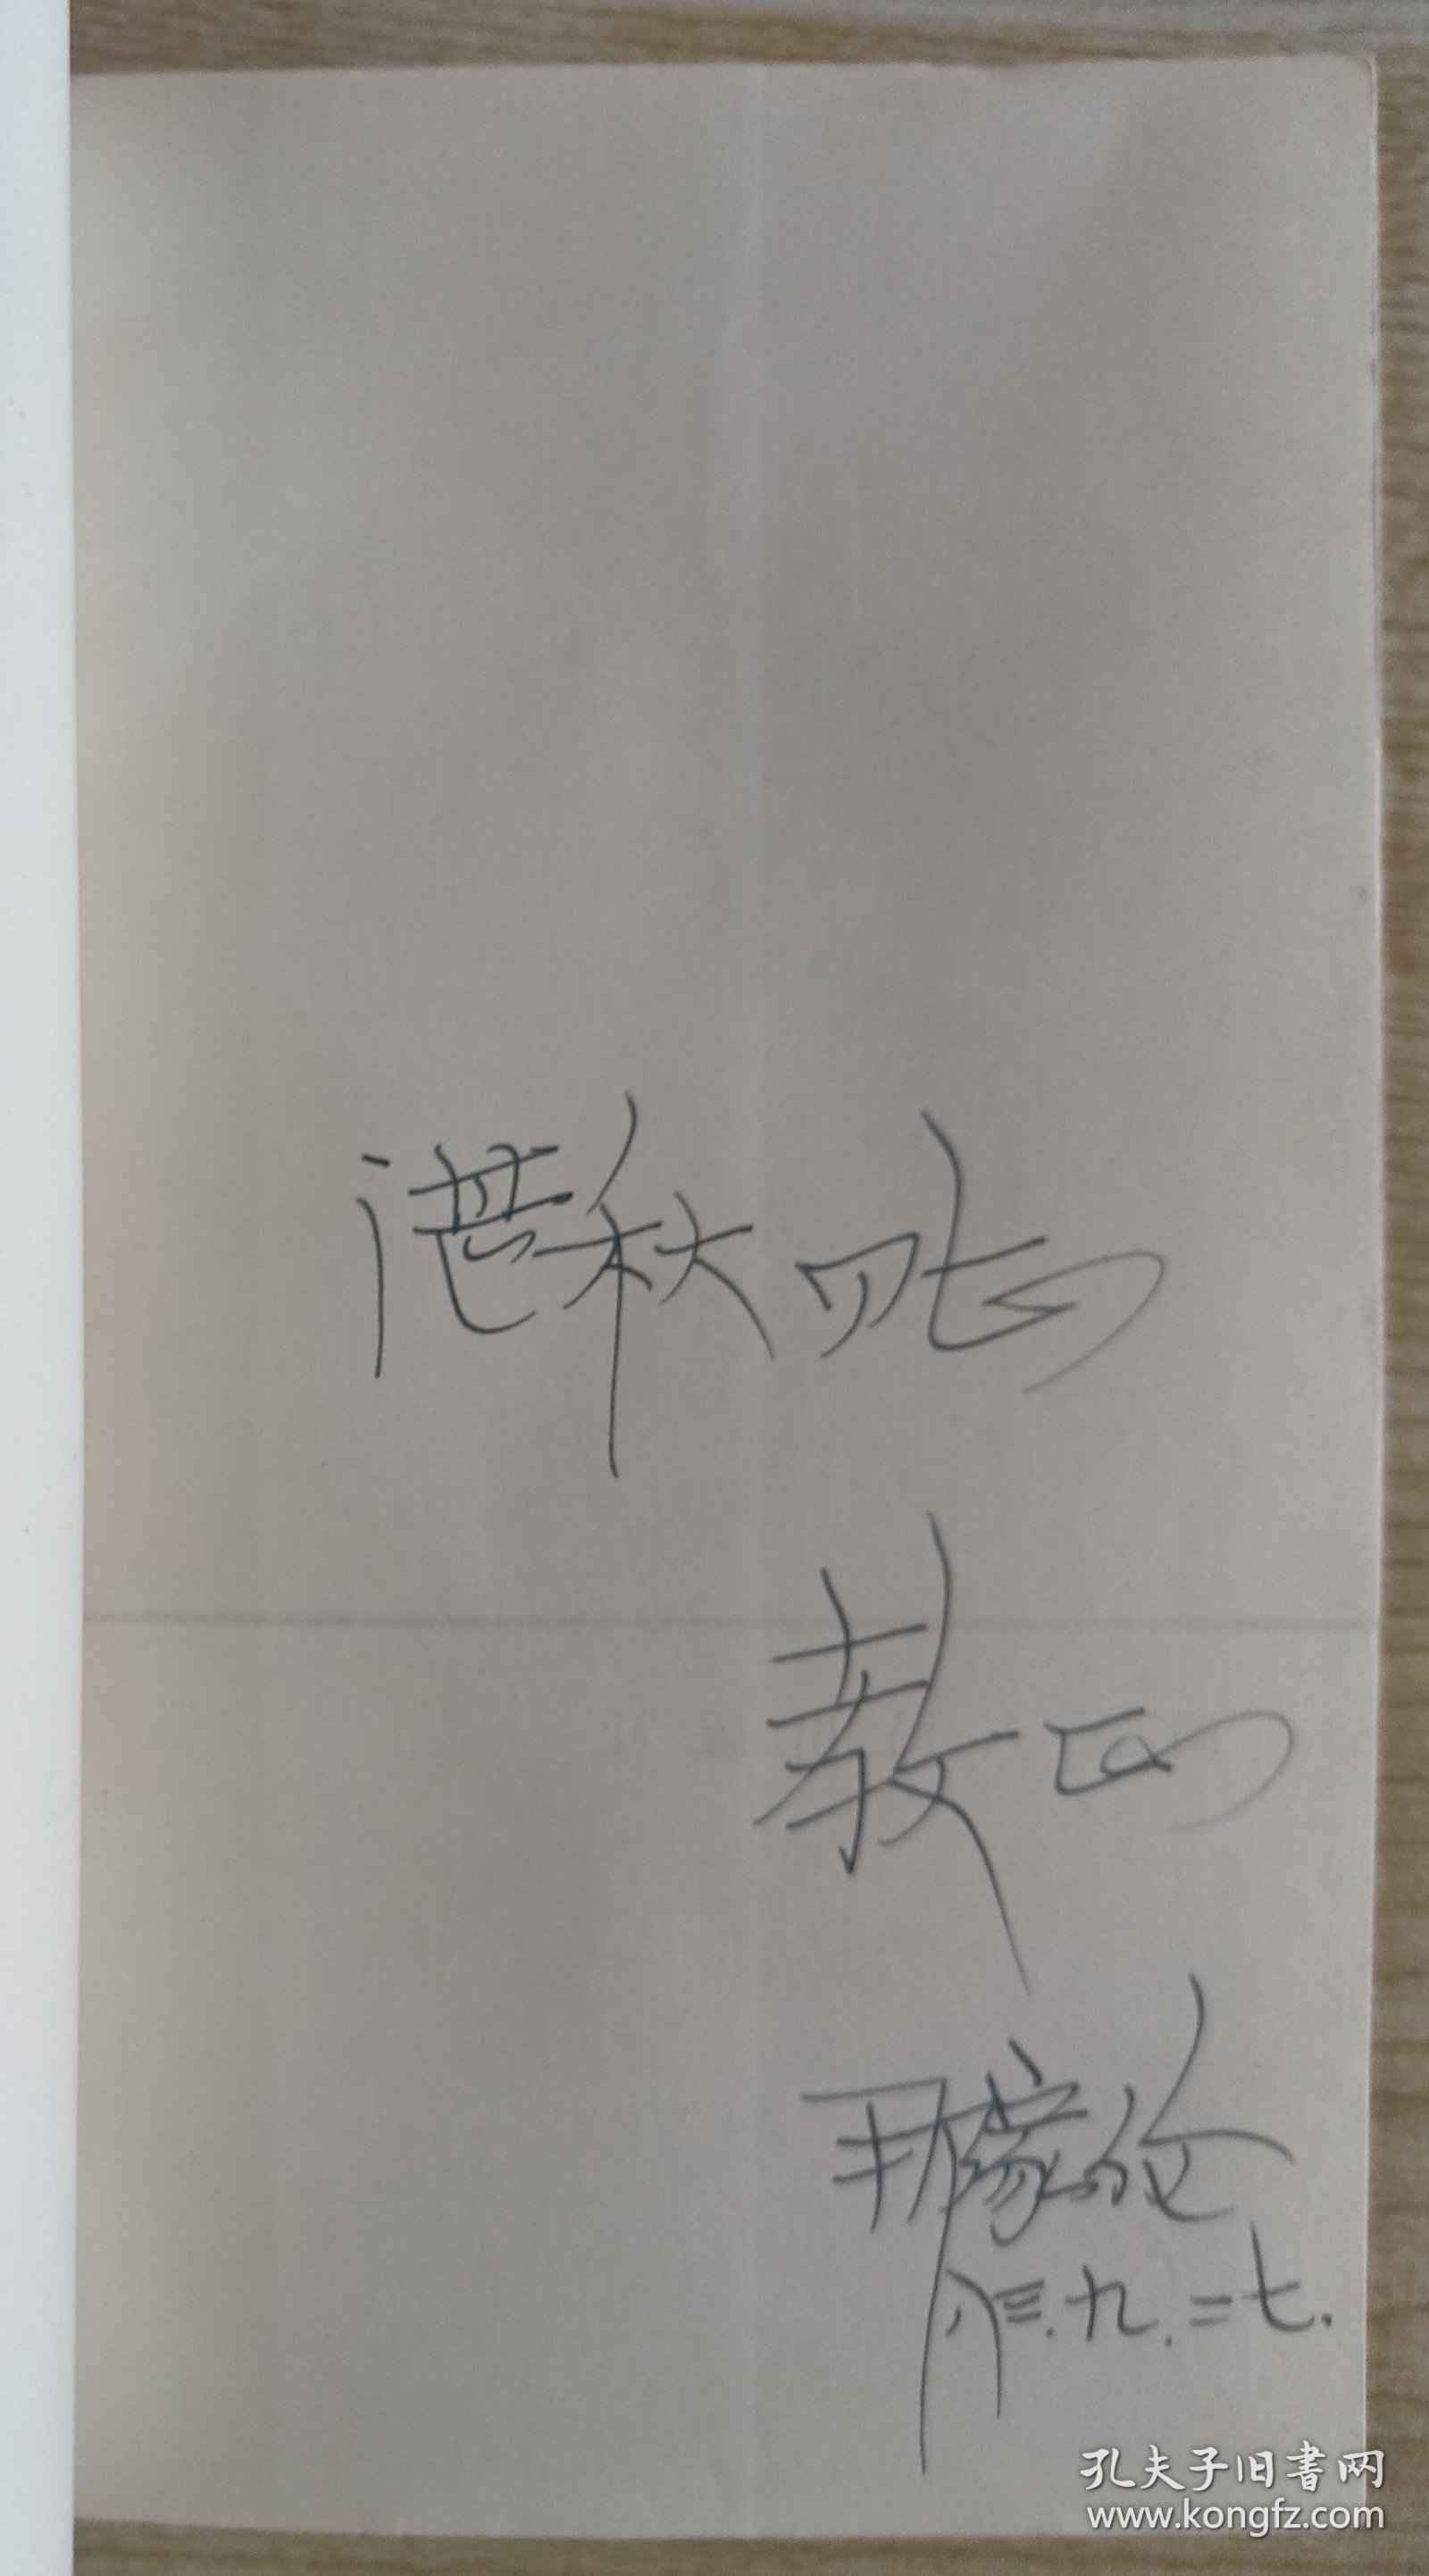 湛秋同志
教正
那家伦
八三.九.二七.
孔夫子旧书网
www.kongfz.com